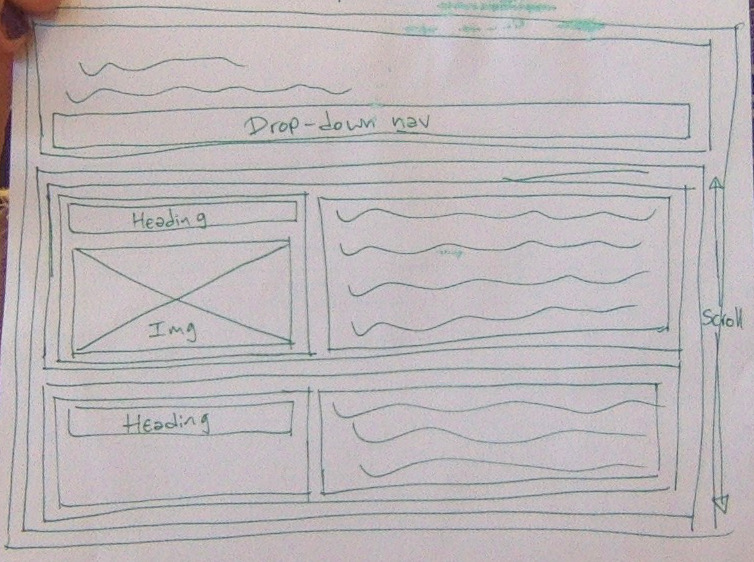 Drop-down nav
Heading
Img
Scroll
Heading